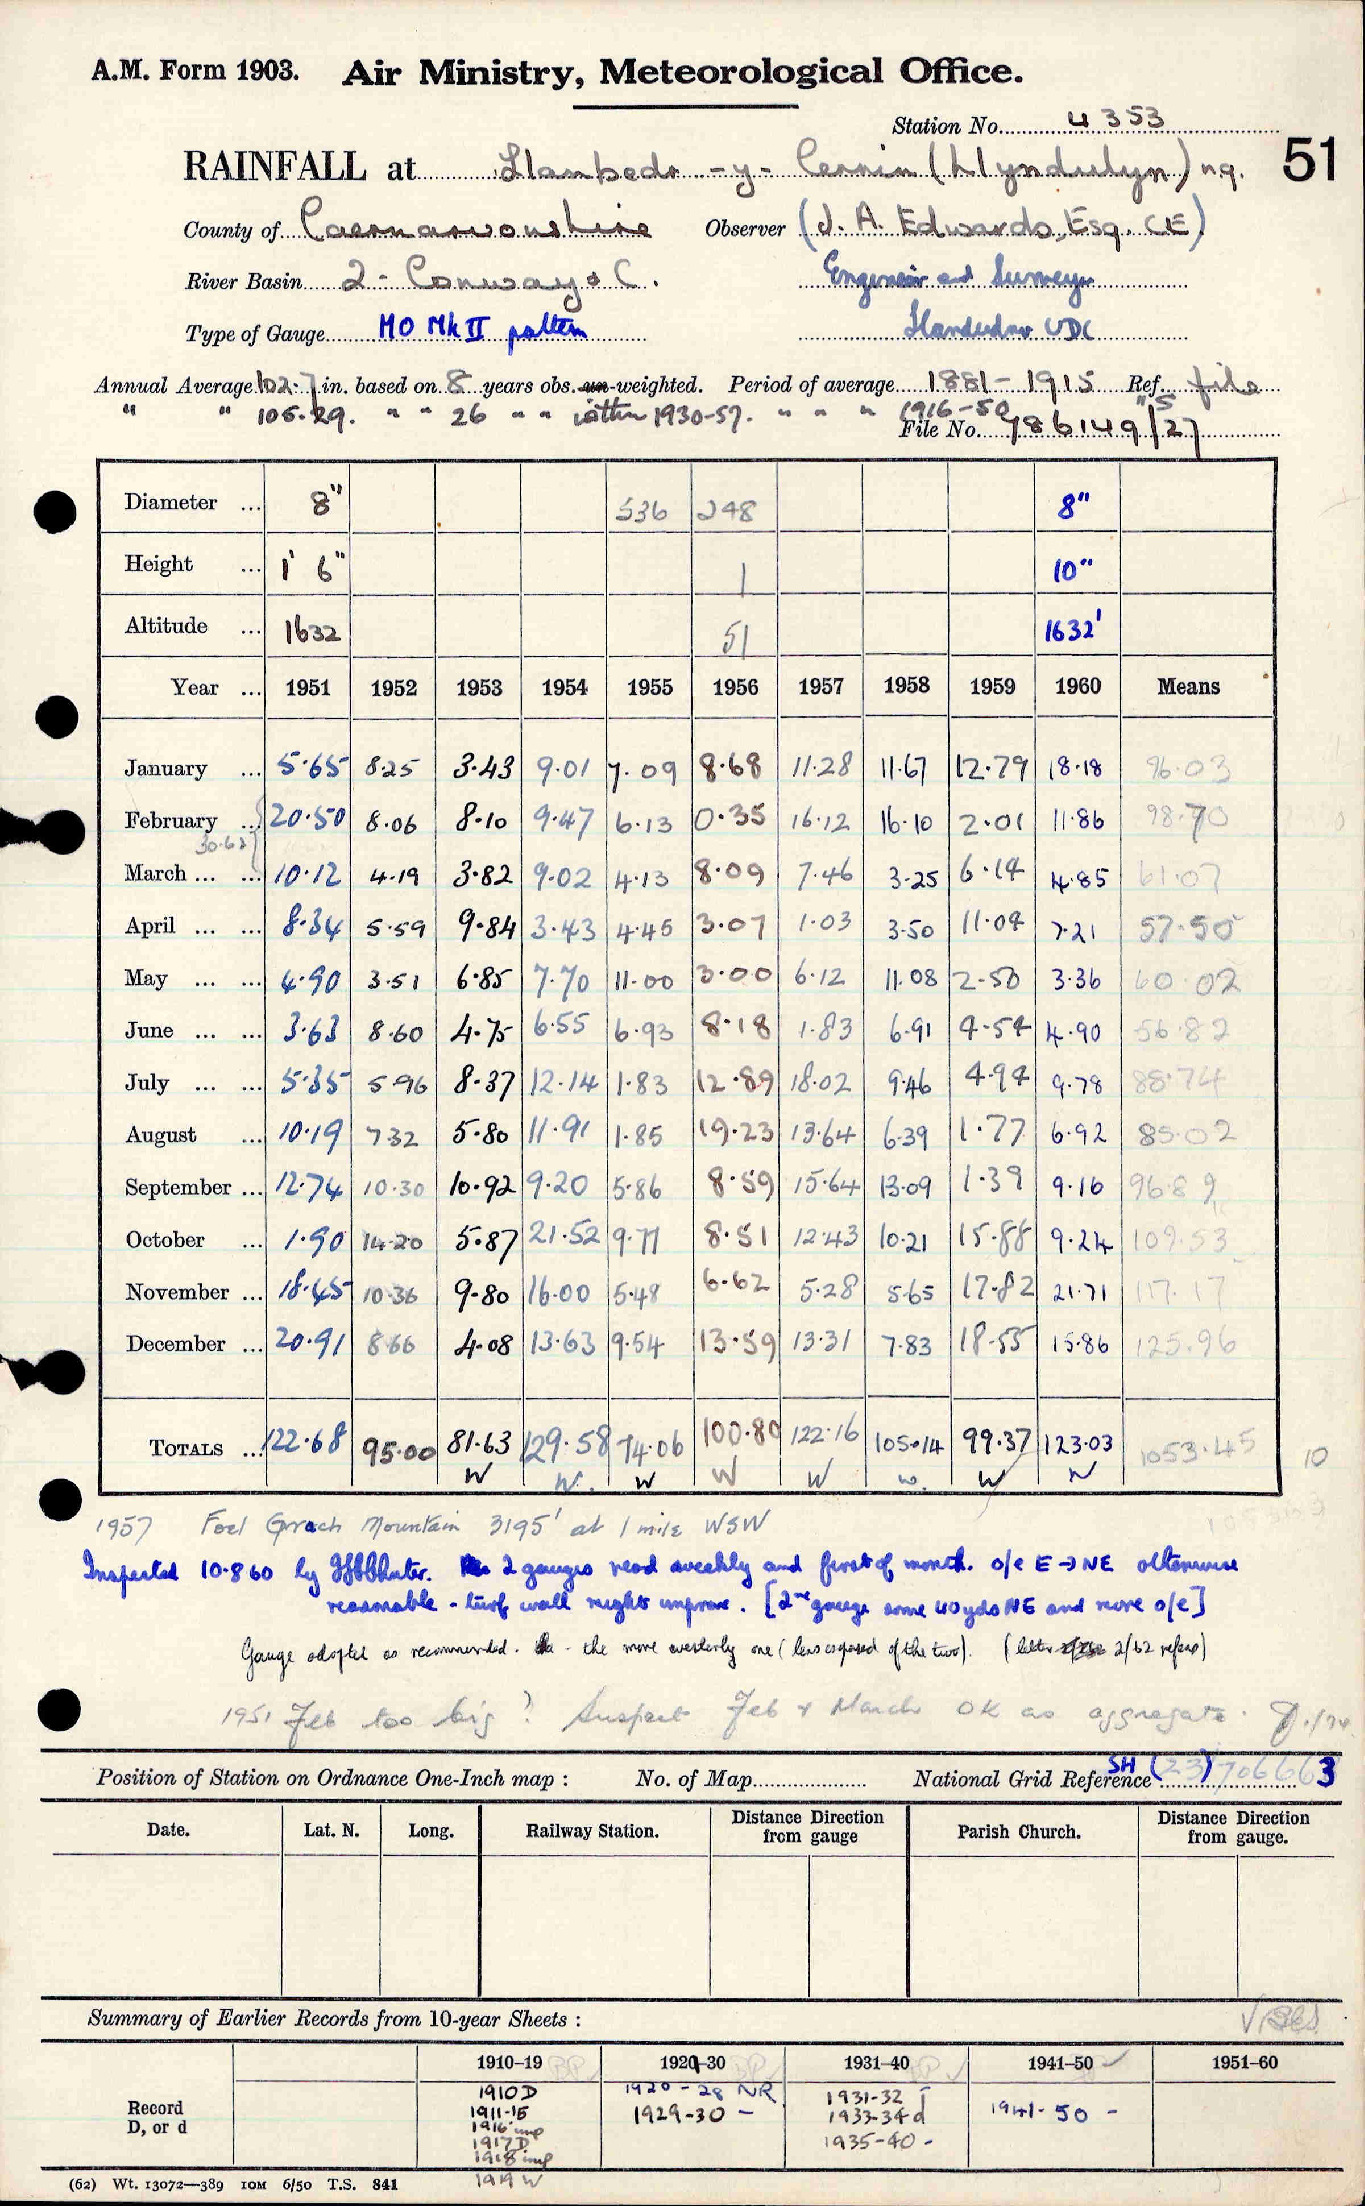 A.M. Form 1903. Air Ministry, Meteorological Office.
Station No. 4353
RAINFALL at Llanbedr -y- Cennin (Llyndulyn) ng. 51
County of Caernarvonshire Observer (J. A. Edwards, Esq. CE)
River Basin 2 - Conway & C. Engineer and Surveyor
Type of Gauge MO Mk II pattern Llandudno UDC
Annual Average 102.7 in. based on 8 years obs. un-weighted. Period of average 1881 - 1915 Ref. file
" " 105.29. " " 26 " " within 1930-57. " " " 1916-50 "S
File No. 786149/27
Diameter ... 8" 536 248 8"
Height ... 1' 6" 1 10"
Altitude ... 1632 51 1632'
Year ... 1951 1952 1953 1954 1955 1956 1957 1958 1959 1960 Means
January ... 5.65 8.25 3.43 9.01 7.09 8.68 11.28 11.67 12.79 18.18 96.03
February ... 20.50 8.06 8.10 9.47 6.13 0.35 16.12 16.10 2.01 11.86 98.70
30.62
March ... ... 10.12 4.19 3.82 9.02 4.13 8.09 7.46 3.25 6.14 4.85 61.07
April ... ... 8.34 5.59 9.84 3.43 4.45 3.07 1.03 3.50 11.04 7.21 57.50
May ... ... 4.90 3.51 6.85 7.70 11.00 3.00 6.12 11.08 2.50 3.36 60.02
June ... ... 3.63 8.60 4.75 6.55 6.93 8.18 1.83 6.91 4.54 4.90 56.82
July ... ... 5.35 5.96 8.37 12.14 1.83 12.89 18.02 9.46 4.94 9.78 88.74
August ... 10.19 7.32 5.80 11.91 1.85 19.23 13.64 6.39 1.77 6.92 85.02
September ... 12.74 10.30 10.92 9.20 5.86 8.59 15.64 13.09 1.39 9.16 96.89
October ... 1.90 14.20 5.87 21.52 9.77 8.51 12.43 10.21 15.88 9.24 109.53
November ... 18.45 10.36 9.80 16.00 5.48 6.62 5.28 5.65 17.82 21.71 117.17
December ... 20.91 8.66 4.08 13.63 9.54 13.59 13.31 7.83 18.55 15.86 125.96
TOTALS ... 122.68 95.00 81.63 129.58 74.06 100.80 122.16 105.14 99.37 123.03 1053.45 10
W W. W W W W. W W
1957 Foel Grach Mountain 3195' at 1 mile WSW
Inspected 10.8.60 by 2 gauges read weekly and first of month. o/e E → NE otherwise
reasonable - turf wall might improve. [2nd gauge some 40 yds NE and more o/e]
Gauge adopted as recommended. - the more westerly one (less exposed of the two). (letter 2/62 refers)
1951 Feb too big? Suspect Feb & March OK as aggregate.
Position of Station on Ordnance One-Inch map : No. of Map National Grid Reference SH (23) 706663
Date. Lat. N. Long. Railway Station. Distance Direction from gauge Parish Church. Distance Direction from gauge.
Summary of Earlier Records from 10-year Sheets :
1910-19 1920-30 1931-40 1941-50 1951-60
Record D, or d
1910 D 1920 - 28 NR 1931-32 I 1941-50 -
1911-15 1929-30 - 1933-34 d
1916 imp 1935-40 -
1917 D
1918 imp
1919 W
(62) Wt. 13072—389 10M 6/50 T.S. 841